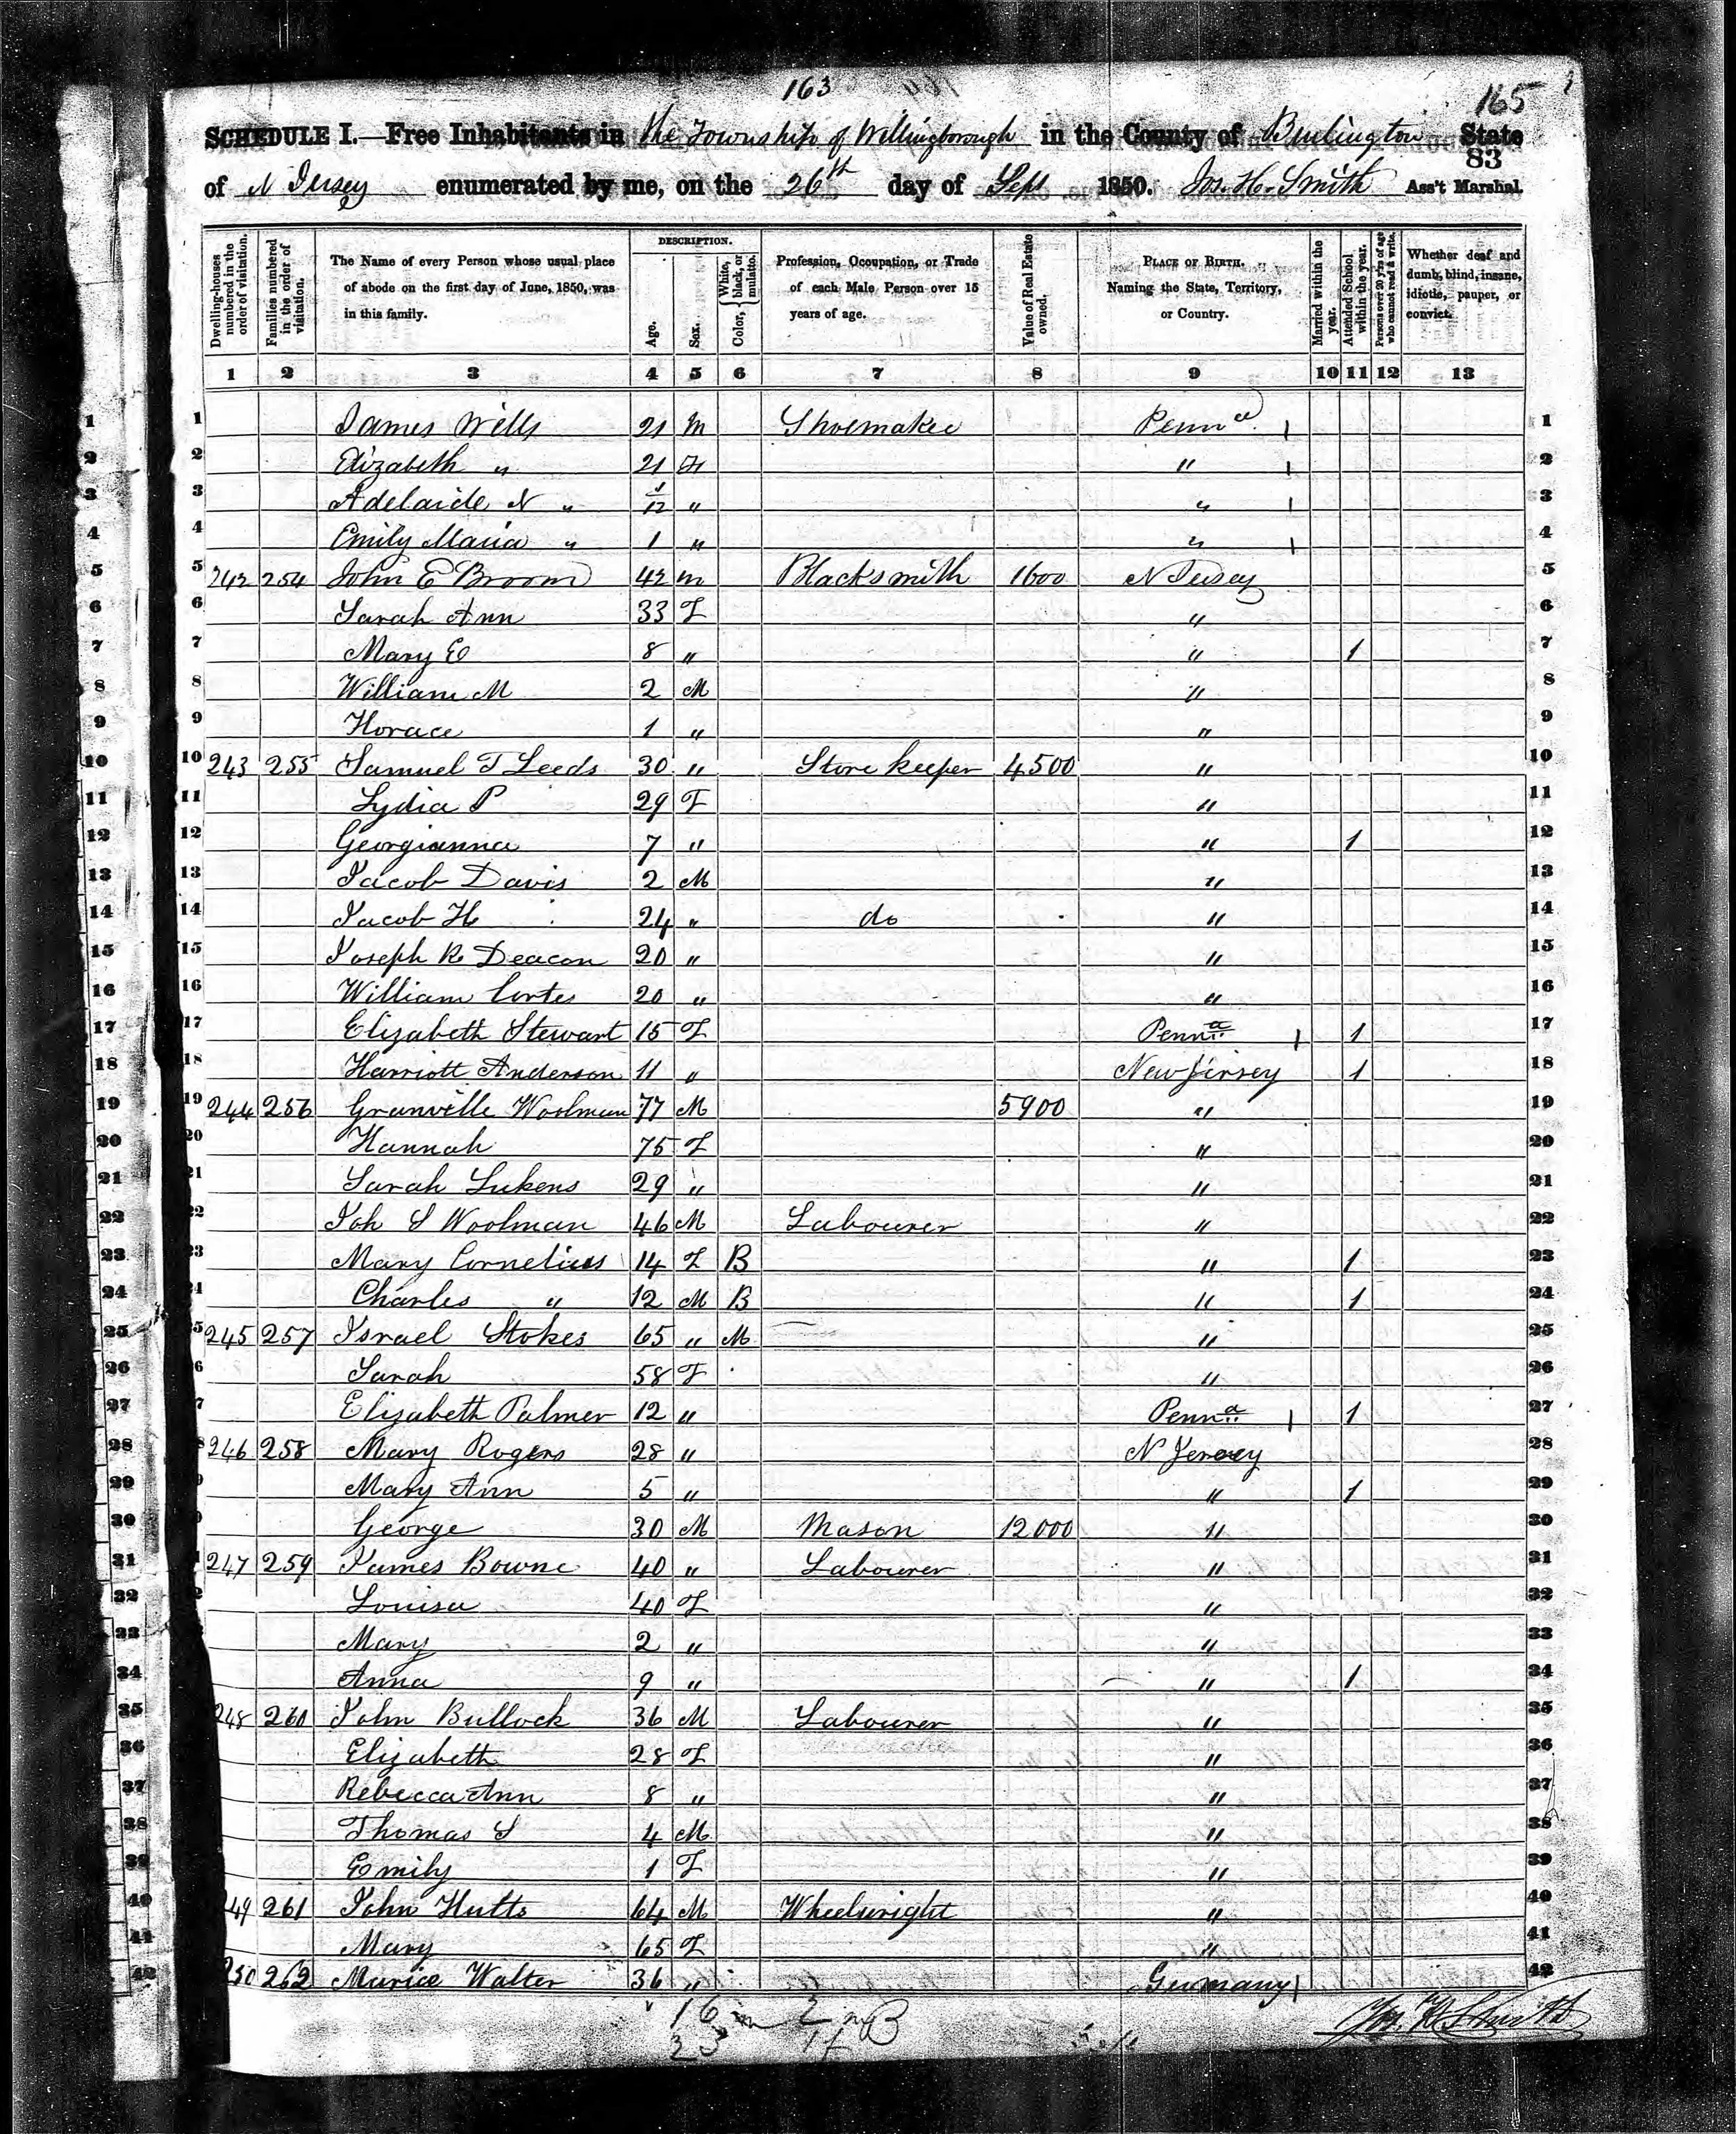 163
165
SCHEDULE I.—Free Inhabitants in the Township of Willingborough in the County of Burlington State
83
of N Jersey enumerated by me, on the 26th day of Sept 1850. Jos. H. Smith Ass't Marshal.
Dwelling-houses numbered in the order of visitation. Families numbered in the order of visitation. The Name of every Person whose usual place of abode on the first day of June, 1850, was in this family. DESCRIPTION. Age. Sex. Color, White, black, or mulatto. Profession, Occupation, or Trade of each Male Person over 15 years of age. Value of Real Estate owned. PLACE OF BIRTH. Naming the State, Territory, or Country. Married within the year. Attended School within the year. Persons over 20 y'rs of age who cannot read & write. Whether deaf and dumb, blind, insane, idiotic, pauper, or convict.
1 2 3 4 5 6 7 8 9 10 11 12 13
1 1 James Wills 21 M Shoemaker Penna. 1
2 2 Elizabeth " 21 F " 2
3 3 Adelaide N " 1/12 " " 3
4 4 Emily Maria " 1 " " 4
5 5 242 254 John E Broom 42 m Blacksmith 1600 N Jersey 5
6 6 Sarah Ann 33 F " 6
7 7 Mary E 8 " " 1 7
8 8 William M 2 M " 8
9 9 Horace 1 " " 9
10 10 243 255 Samuel T Leeds 30 " Store keeper 4500 " 10
11 11 Lydia P 29 F " 11
12 12 Georgianna 7 " " 1 12
13 13 Jacob Davis 2 M " 13
14 14 Jacob H 24 " do " 14
15 15 Joseph R Deacon 20 " " 15
16 16 William Cortes 20 " " 16
17 17 Elizabeth Stewart 15 F Penna. 1 17
18 18 Harriott Anderson 11 " New Jersey 1 18
19 19 244 256 Granville Woolman 77 M 5900 " 19
20 20 Hannah 75 F " 20
21 21 Sarah Lukens 29 " " 21
22 22 Joh S Woolman 46 M Labourer " 22
23 23 Mary Cornelius 14 F B " 1 23
24 Charles " 12 M B " 1 24
25 5 245 257 Israel Stokes 65 " M " 25
26 6 Sarah 58 F " 26
27 7 Elizabeth Palmer 12 " Penna. 1 27
28 8 246 258 Mary Rogers 28 " N Jersey 28
29 9 Mary Ann 5 " " 1 29
30 George 30 M Mason 12000 " 30
31 247 259 James Bowne 40 " Labourer " 31
32 Louisa 40 F " 32
33 Mary 2 " " 33
34 Anna 9 " " 1 34
35 248 260 John Bullock 36 M Labourer " 35
36 Elizabeth 28 F " 36
37 Rebecca Ann 8 " " 37
38 Thomas S 4 M " 38
39 Emily 1 F " 39
40 49 261 John Hutts 64 M Wheelwright " 40
41 Mary 65 F " 41
42 250 262 Marice Walter 36 " Germany 42
16 m 2 m B
23 1 f
Jos. H. Smith